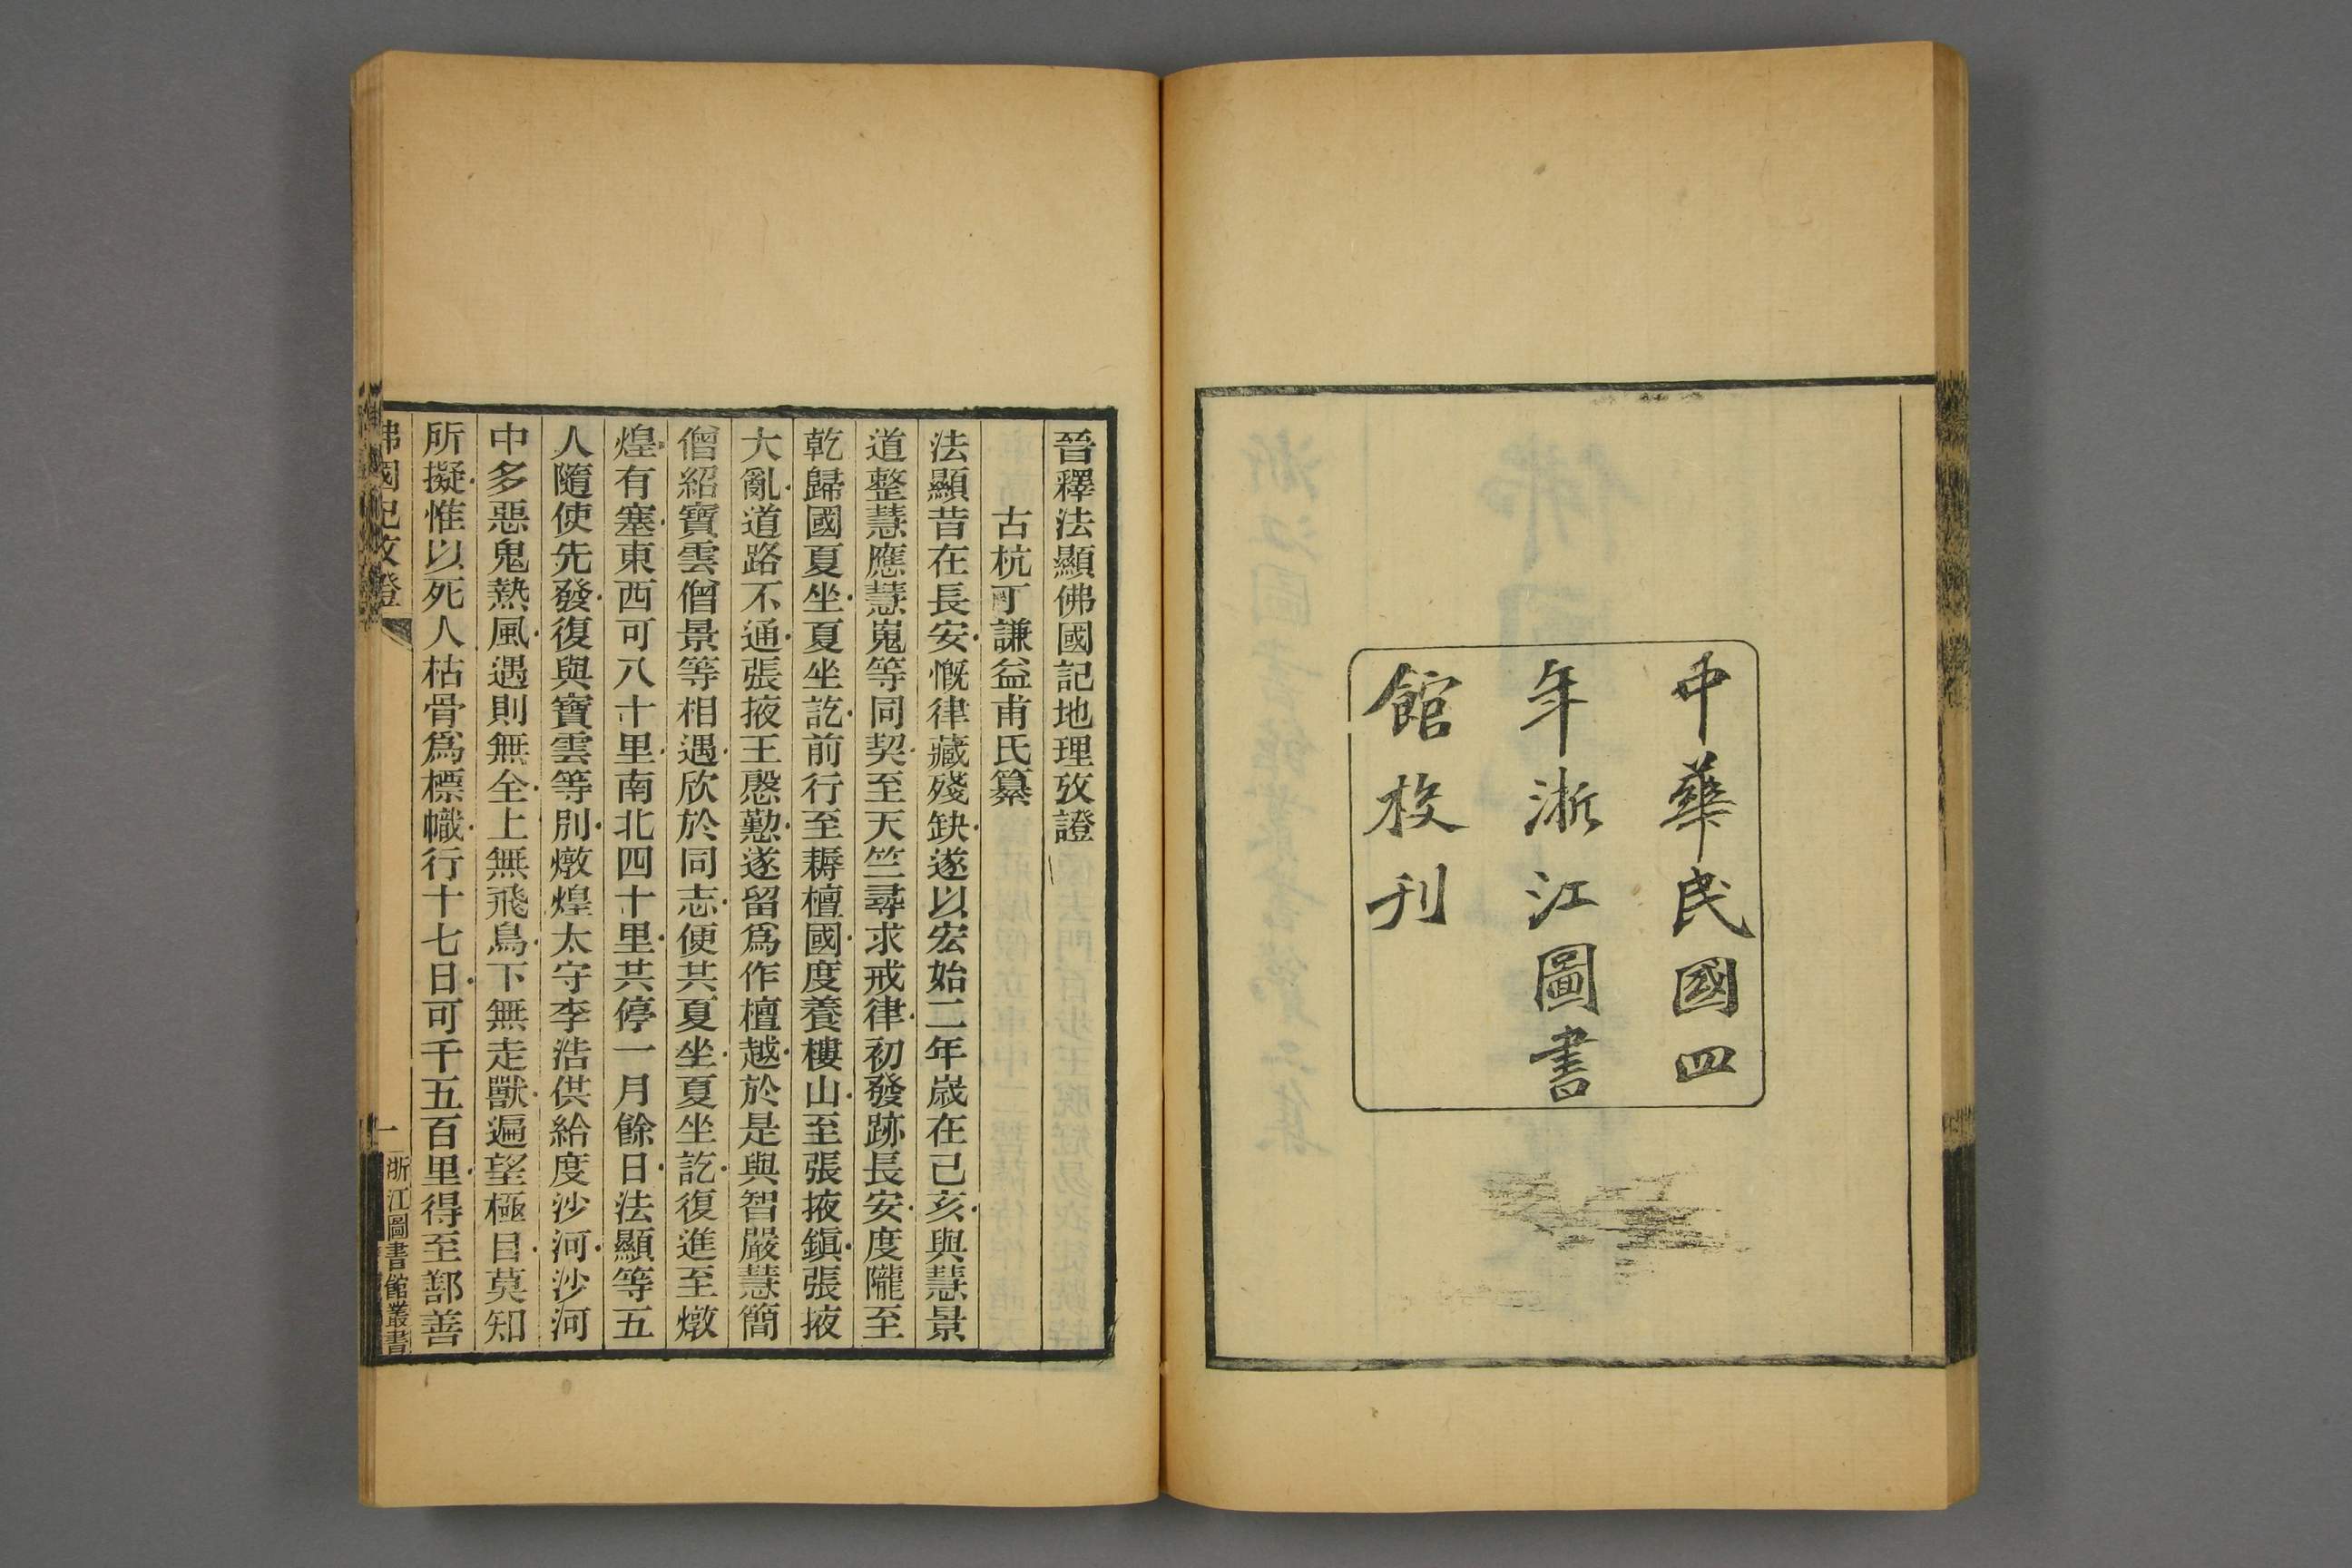 中華民國四
年浙江圖書
館校刊
晉釋法顯佛國記地理攷證
古杭丁謙益甫氏纂
法顯昔在長安慨律藏殘缺遂以宏始二年歲在己亥與慧景
道整慧應慧嵬等同契至天竺尋求戒律初發跡長安度隴至
乾歸國夏坐夏坐訖前行至耨檀國度養樓山至張掖鎭張掖
大亂道路不通張掖王慇懃遂留爲作檀越於是與智嚴慧簡
僧紹寶雲僧景等相遇欣於同志便共夏坐夏坐訖復進至燉
煌有塞東西可八十里南北四十里共停一月餘日法顯等五
人隨使先發復與寶雲等別燉煌太守李浩供給度沙河沙河
中多惡鬼熱風遇則無全上無飛鳥下無走獸遍望極目莫知
所擬惟以死人枯骨爲標幟行十七日可千五百里得至鄯善
佛國記攷證
一
浙江圖書館叢書